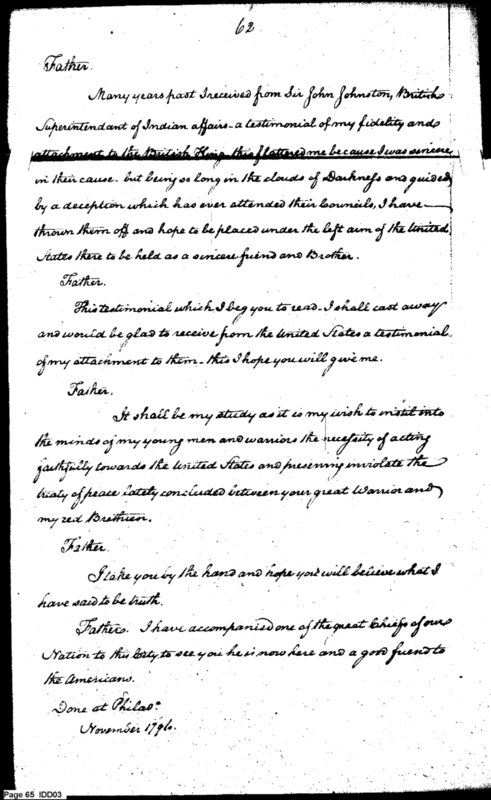 62
Father.
Many years past I received from Sir John Johnston, British
Superintendant of Indian affairs - a testimonial of my fidelity and
attachment to the British King - this flattered me because I was sincere
in their cause - but being so long in the clouds of Darkness and guided
by a deception which has ever attended their Councils, I have
thrown them off and hope to be placed under the left aim of the United
States there to be held as a sincere friend and Brother.
Father.
This testimonial which I beg you to read - I shall cast away
and would be glad to receive from the United States a testimonial
of my attachment to them - this I hope you will give me.
Father.
It shall be my study as it is my wish to instil into
the minds of my young men and warriors the necessity of acting
faithfully towards the United States and preserving inviolate the
treaty of peace lately concluded between your great Warrior and
my red Brethren.
Father.
I take you by the hand and hope you will believe what I
have said to be truth.
Father. I have accompanied one of the great Chiefs of our
Nation to this City to see you he is now here and a good friend to
the Americans.
Done at Philada.
November 1796.
Page 65 IDD03